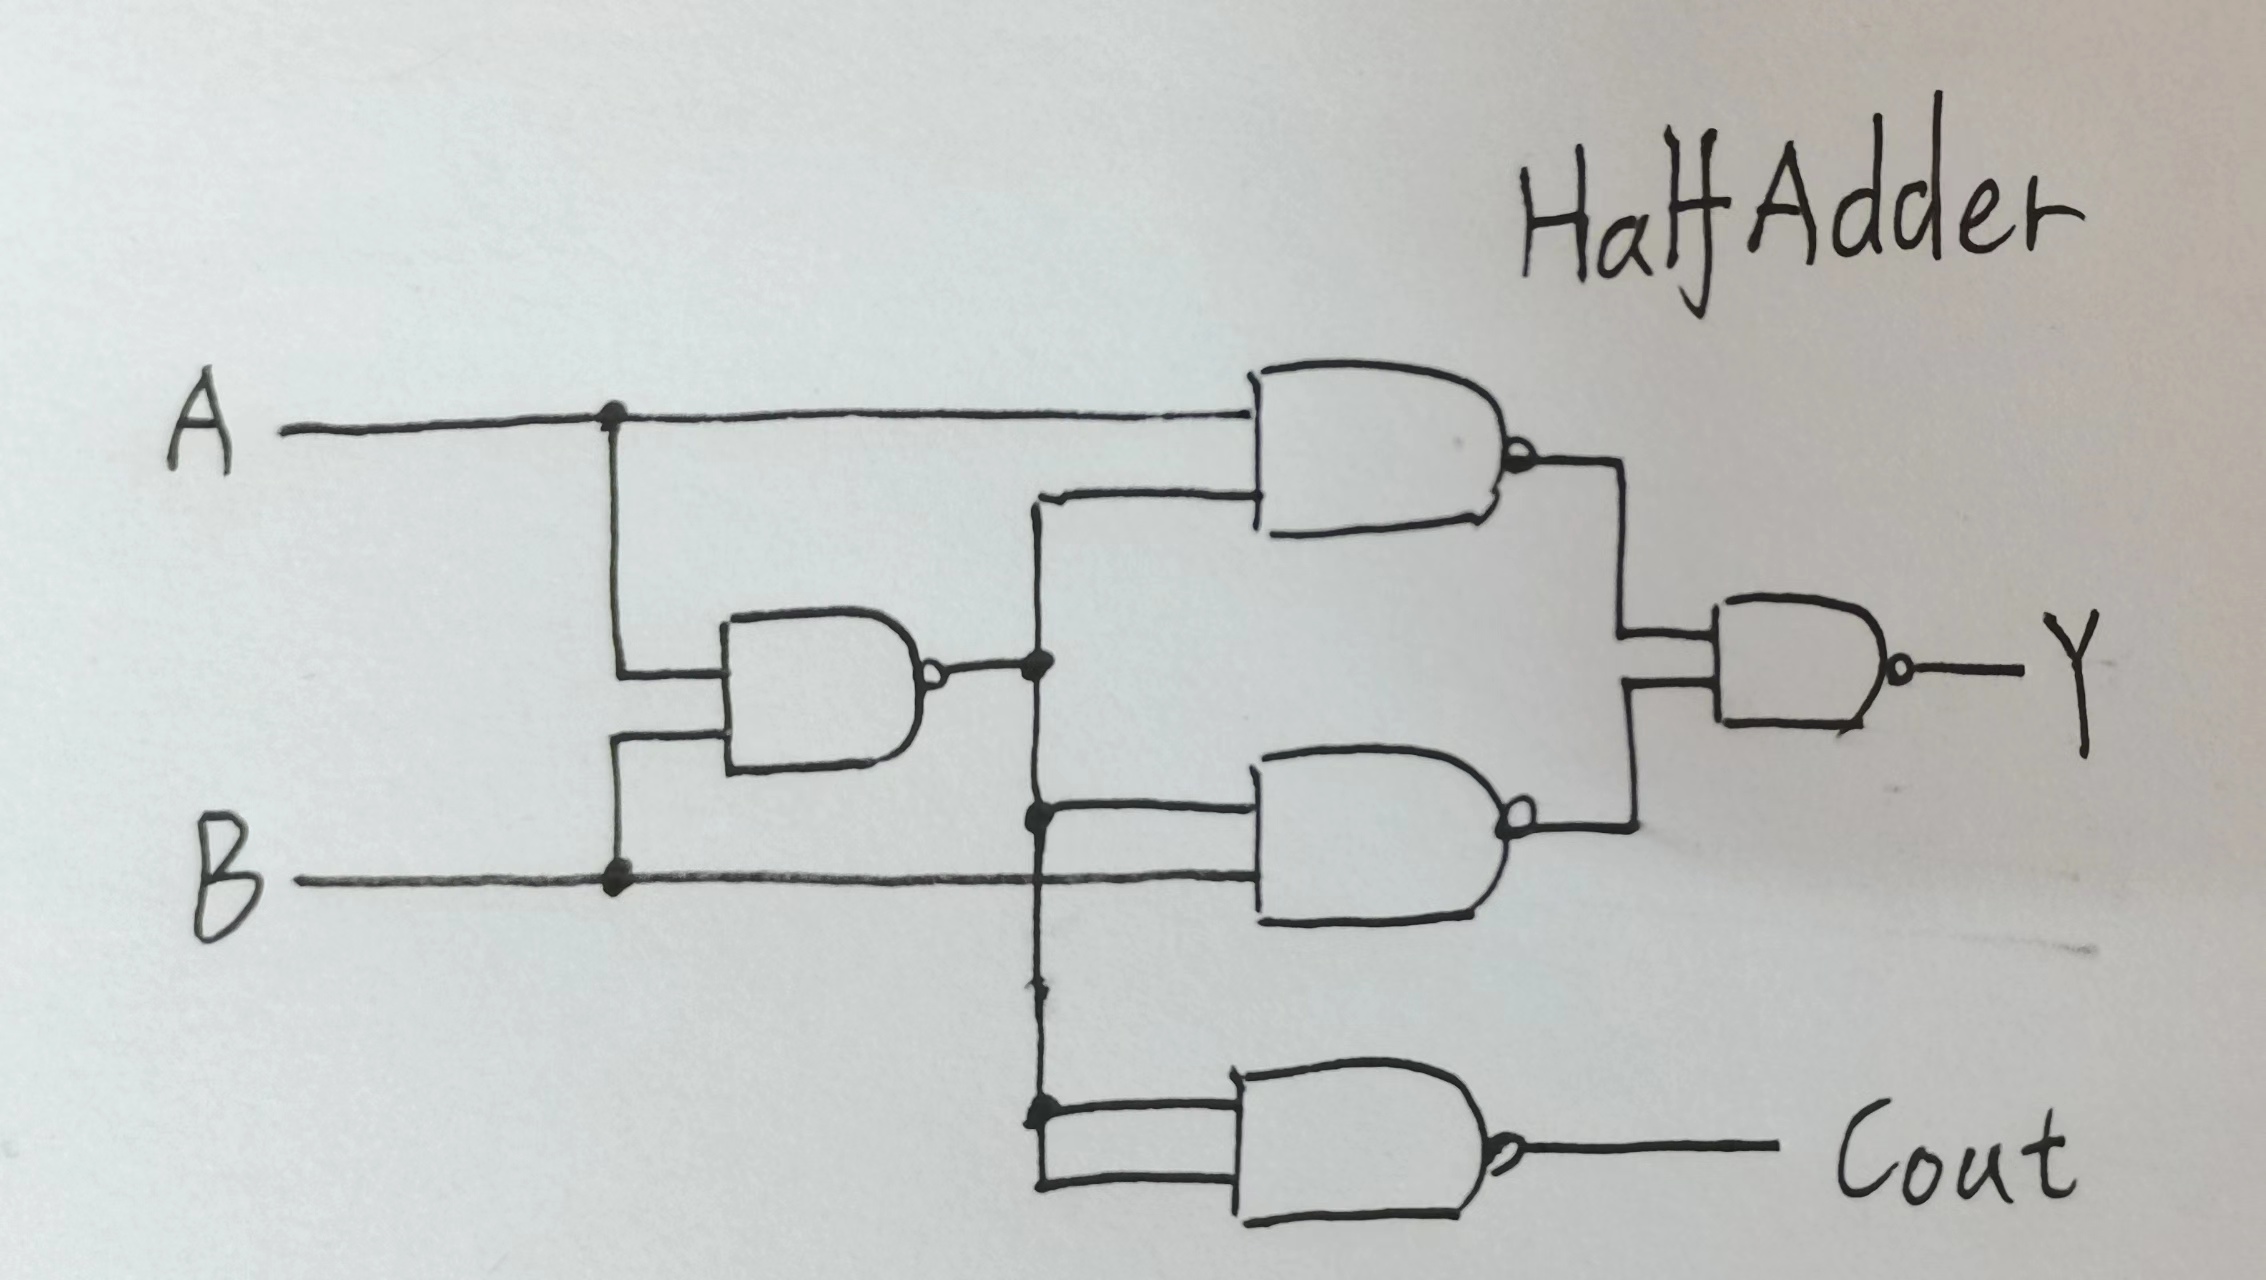 Half Adder
A
Y
B
Cout